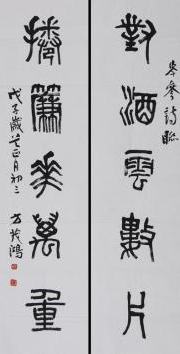 岑參詩聯
對酒雲數片
捲簾華萬重
戊子歲之正月初三 方茂鴻